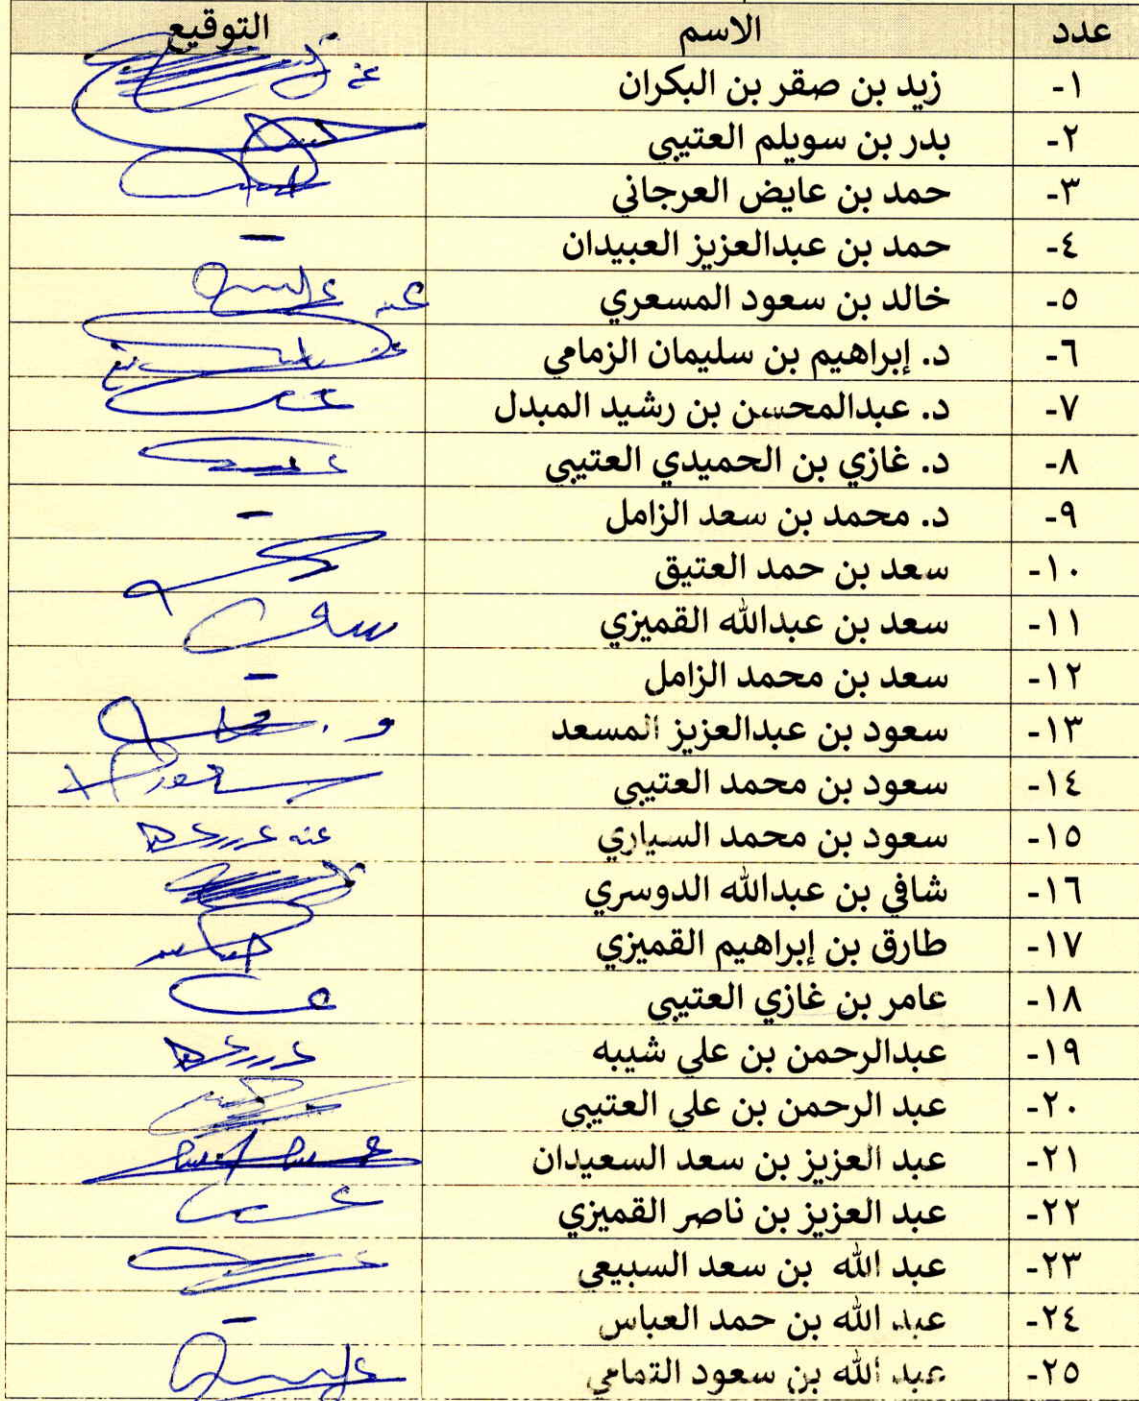 عدد الاسم التوقيع
١- زيد بن صقر بن البكران
٢- بدر بن سويلم العتيبي
٣- حمد بن عايض العرجاني
٤- حمد بن عبدالعزيز العبيدان -
٥- خالد بن سعود المسعري
٦- د. إبراهيم بن سليمان الزمامي
٧- د. عبدالمحسن بن رشيد المبدل
٨- د. غازي بن الحميدي العتيبي
٩- د. محمد بن سعد الزامل -
١٠- سعد بن حمد العتيق
١١- سعد بن عبدالله القميزي
١٢- سعد بن محمد الزامل -
١٣- سعود بن عبدالعزيز المسعد
١٤- سعود بن محمد العتيبي
١٥- سعود بن محمد السياري عنه
١٦- شافي بن عبدالله الدوسري
١٧- طارق بن إبراهيم القميزي
١٨- عامر بن غازي العتيبي
١٩- عبدالرحمن بن علي شيبه
٢٠- عبد الرحمن بن علي العتيبي
٢١- عبد العزيز بن سعد السعيدان
٢٢- عبد العزيز بن ناصر القميزي
٢٣- عبد الله بن سعد السبيعي
٢٤- عبد الله بن حمد العباس -
٢٥- عبد الله بن سعود التمامي